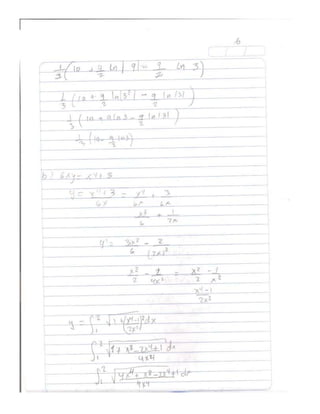 6
1/3 (10 + 9/2 ln |9| - 9/2 ln 3)
1/3 (10 + 9/2 ln |3²| - 9/2 ln |3|)
1/3 (10 + 9 ln 3 - 9/2 ln |3|)
1/3 (10 + 9/2 ln 3)
b) 6xy = x⁴ + 3
y = (x⁴ + 3)/6x = x⁴/6x + 3/6x
x³/6 + 1/2x
y' = 3x²/6 - 2/(2x)²
x²/2 - 2/4x² = x²/2 - 1/x²
(x⁴ - 1)/2x²
y = ∫₁² √(1 + (x⁴ - 1)²/2x²) dx
∫₁² √(1 + x⁸ - 2x⁴ + 1)/4x⁴ dx
∫₁² √(4x⁴ + x⁸ - 2x⁴ + 1)/4x⁴ dx